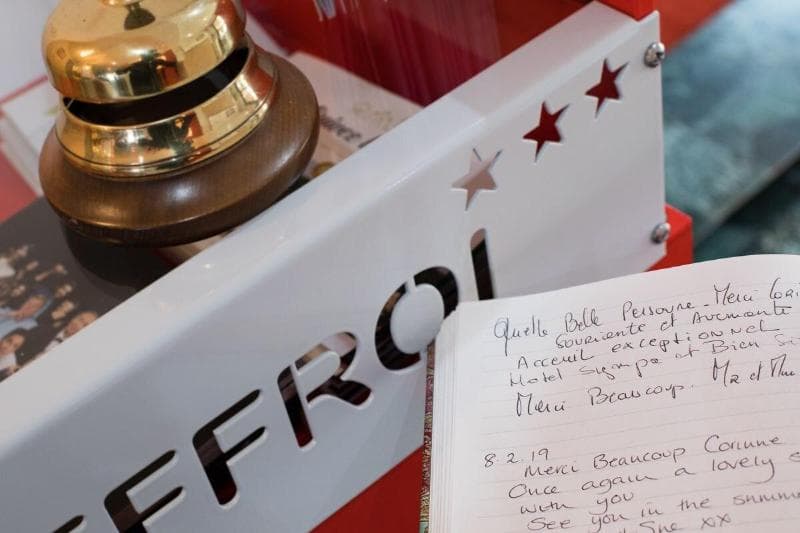 EFFROI
Quelle Belle Personne - Merci
souriante et Avenante
Acceuil exceptionnel
Hotel Sympa et Bien
Merci Beaucoup. Mr et Mme
8.2.19
Merci Beaucoup Corinne
Once again a lovely
with you
See you in the summe
Sue xx